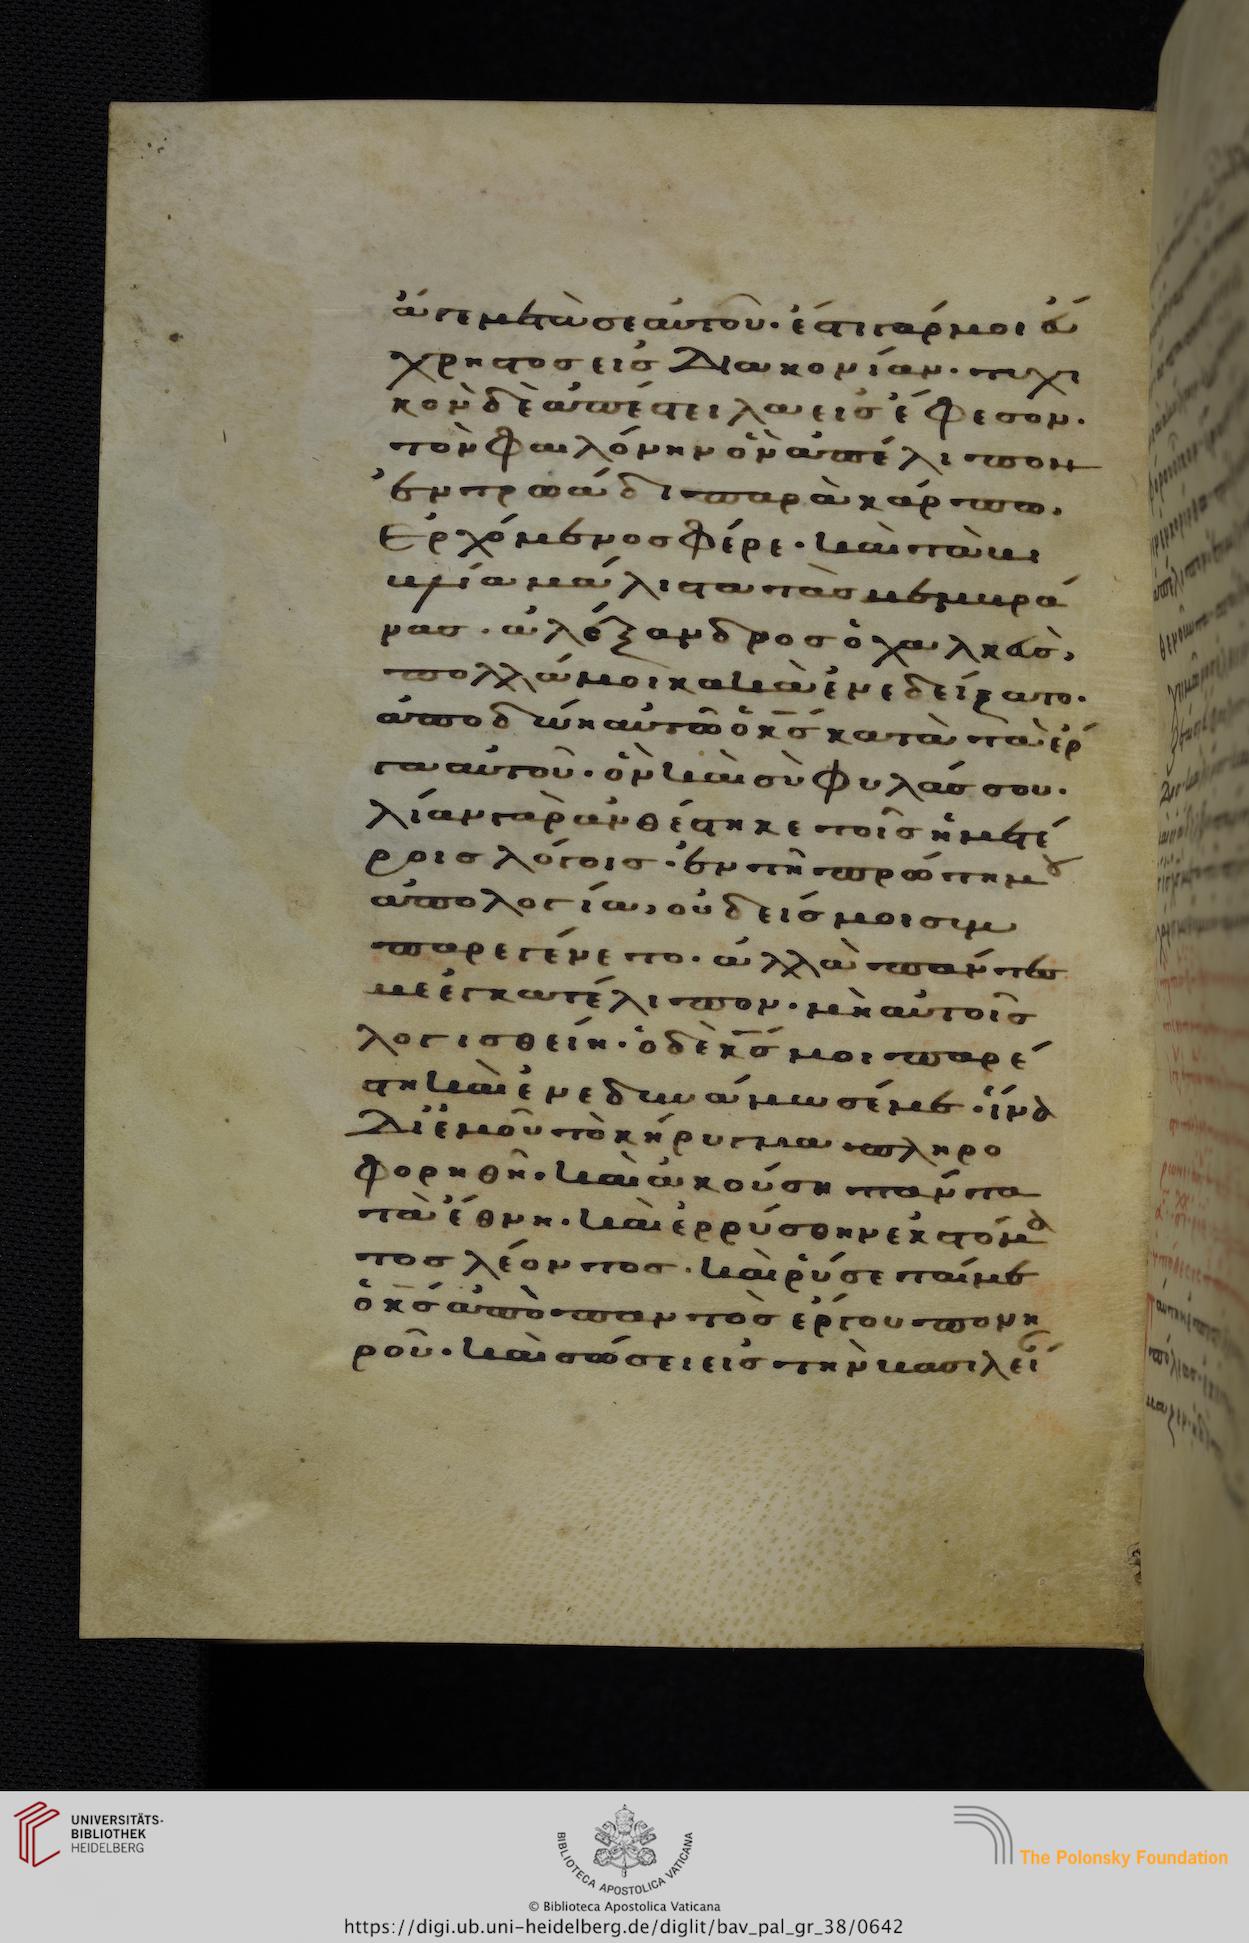 ἄγε μετὰ σεαυτοῦ· ἔστι γάρ μοι εὔ
χρηστος εἰς διακονίαν· τυχι
κὸν δὲ ἀπέστειλα εἰς ἔφεσον·
τὸν φαιλόνην ὃν ἀπέλιπον
ἐν τρωάδι παρὰ κάρπω,
ἐρχόμενος φέρε· καὶ τὰ βι
βλία μάλιστα τὰς μεμβρά
νας· ἀλέξανδρος ὁ χαλκεὺς,
πολλά μοι κακὰ ἐνεδείξατο·
ἀποδώη αὐτῶ ὁ κς κατὰ τὰ ἔρ
γα αὐτοῦ· ὃν καὶ σὺ φυλάσσου·
λίαν γὰρ ἀνθέστηκε τοῖς ἡμετέ
ροις λόγοις· ἐν τῆ πρώτη μου
ἀπολογία, οὐδείς μοι συμ
παρεγένετο· ἀλλὰ πάντες
με ἐγκατέλιπον· μὴ αὐτοῖς
λογισθείη· ὁ δὲ κς μοι παρέ
στη καὶ ἐνεδυνάμωσέ με· ἵνα
δι' ἐμοῦ τὸ κήρυγμα πληρο
φορηθῆ· καὶ ἀκούση πάντα
τὰ ἔθνη· καὶ ἐρρύσθην ἐκ στόμα
τος λέοντος· καὶ ῥύσεταί με
ὁ κς ἀπὸ παντὸς ἔργου πονη
ροῦ· καὶ σώσει εἰς τὴν βασιλεί
UNIVERSITÄTS-
BIBLIOTHEK
HEIDELBERG
BIBLIOTECA APOSTOLICA VATICANA
The Polonsky Foundation
© Biblioteca Apostolica Vaticana
https://digi.ub.uni-heidelberg.de/diglit/bav_pal_gr_38/0642